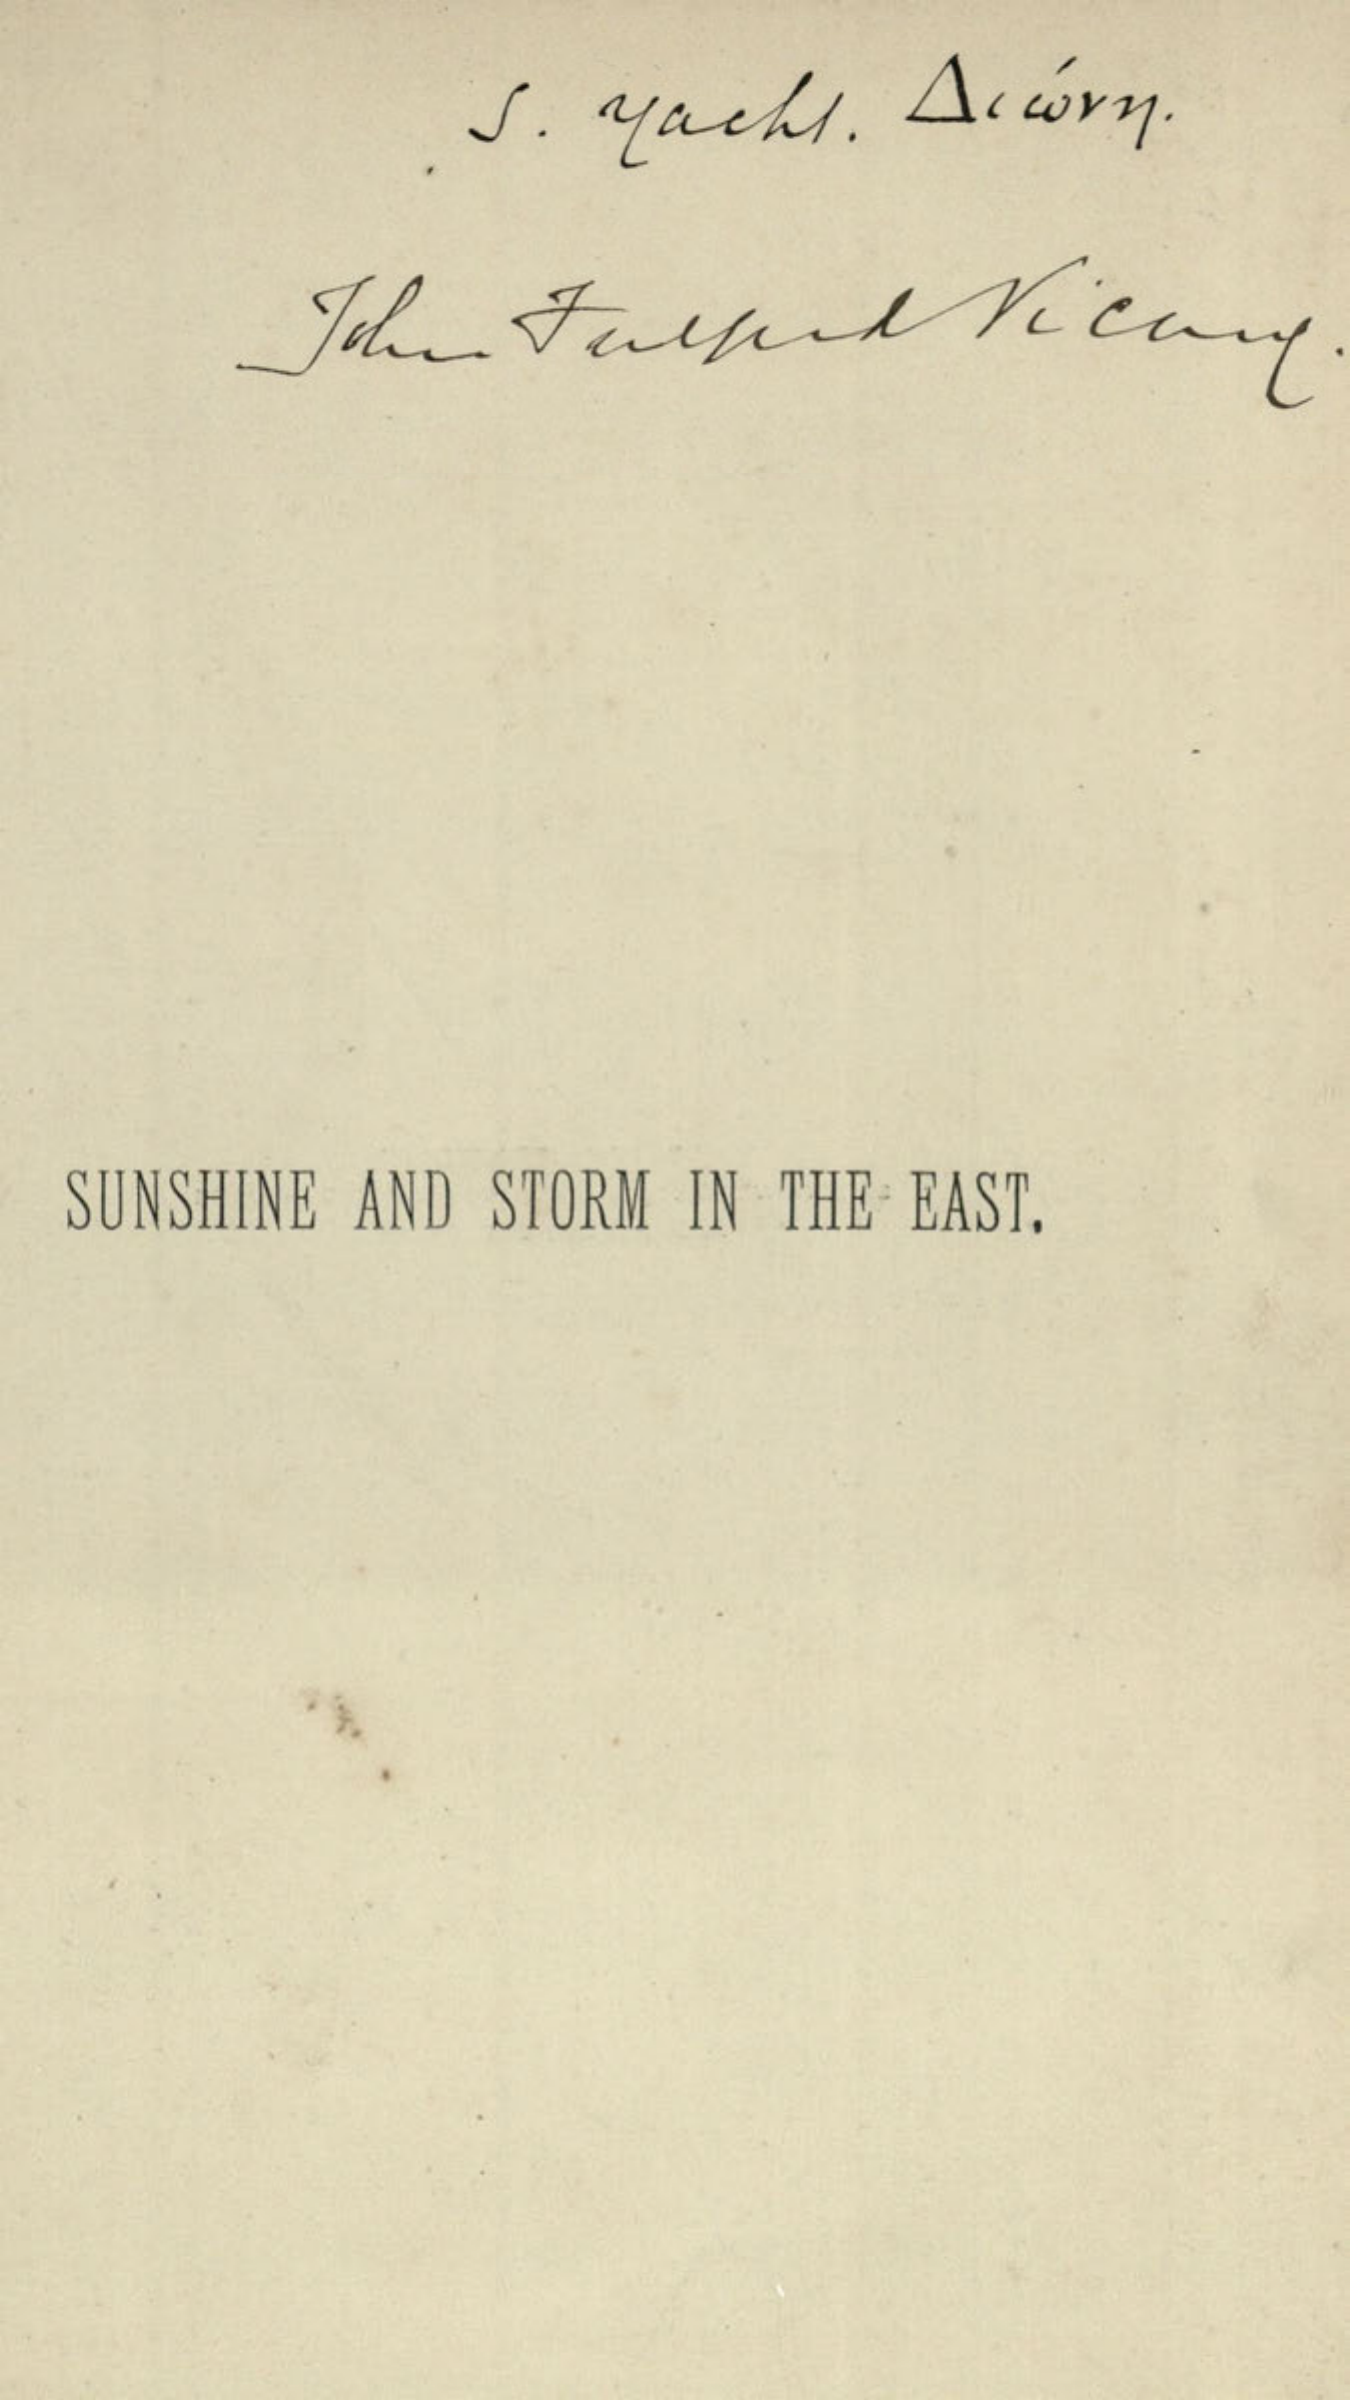 S. Yacht. Διώνη.
John Fulford Vicary.
SUNSHINE AND STORM IN THE EAST.